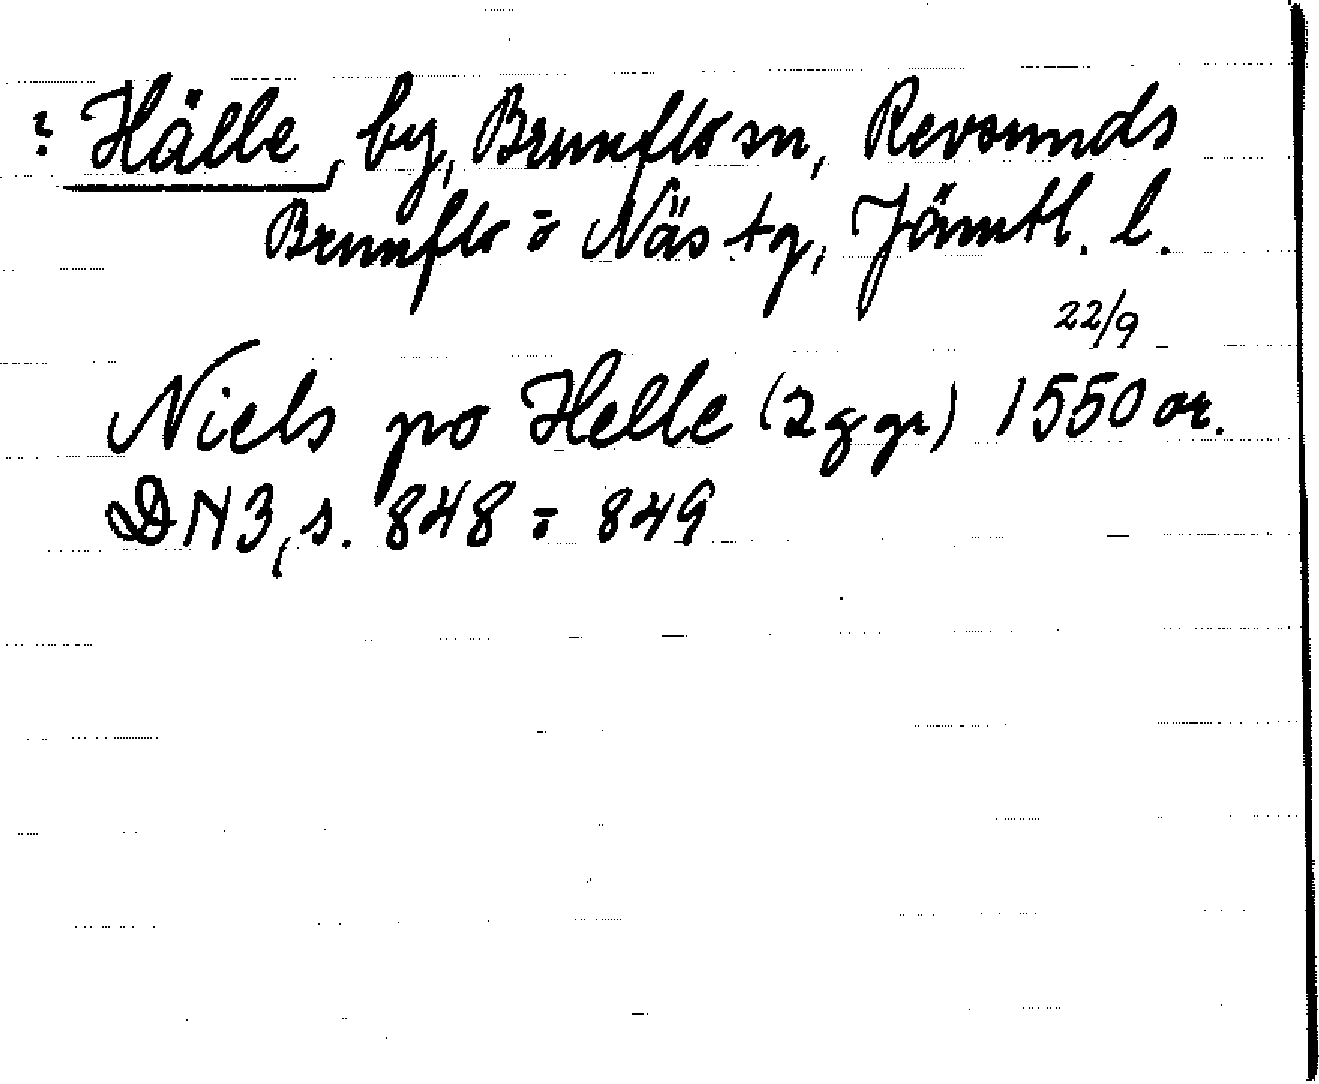 ? Hälle, by, Brunflo sn, Revsunds
Brunflo o Näs tg, Jämtl. l.
22/9
Niels po Helle (2 ggr) 1550 or.
DN 3, s. 848 o 849